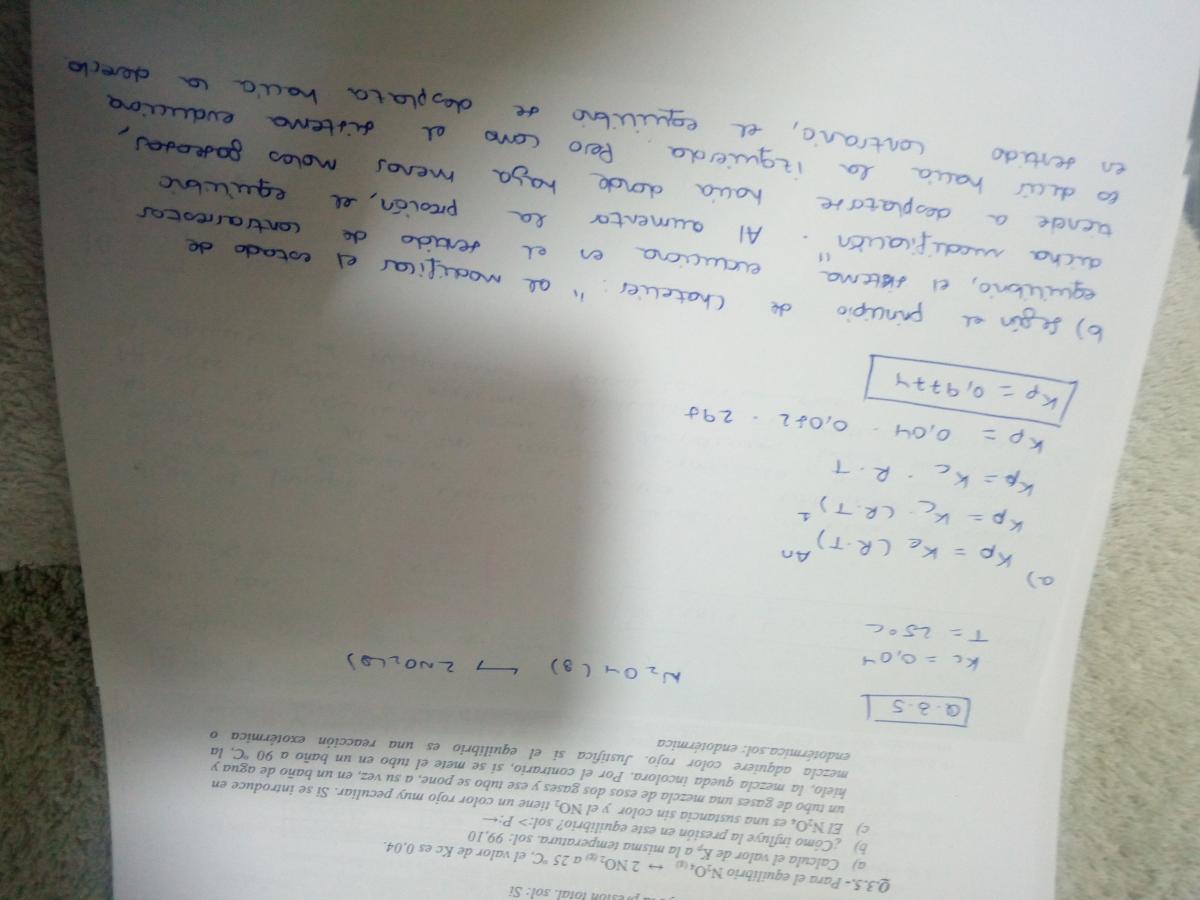 la presión total. sol: Si
Q.3.5.- Para el equilibrio N₂O₄ (g) ↔ 2 NO₂ (g) a 25 ºC, el valor de Kc es 0.04.
a) Calcula el valor de Kp a la misma temperatura. sol: 99,10
b) ¿Cómo influye la presión en este equilibrio? sol:> P:←
c) El N₂O₄ es una sustancia sin color y el NO₂ tiene un color rojo muy peculiar. Si se introduce en
un tubo de gases una mezcla de esos dos gases y ese tubo se pone, a su vez, en un baño de agua y
hielo, la mezcla queda incolora. Por el contrario, si se mete el tubo en un baño a 90 ºC, la
mezcla adquiere color rojo. Justifica si el equilibrio es una reacción exotérmica o
endotérmica.sol: endotérmica
Q.3.5
N₂O4 (g) → 2NO₂(g)
Kc = 0,04
T = 25ºC
a) Kp = Kc (R.T)^Δn
Kp = Kc (R.T)^1
Kp = Kc . R.T
Kp = 0,04 . 0,082 . 298
Kp = 0,9774
b) Según el principio de Chatelier: "al modificar el estado de
equilibrio, el sistema evoluciona en el sentido de contrarrestar
dicha modificación". Al aumentar la presión, el equilibrio
tiende a desplazarse hacia donde haya menos moles gaseosos,
es decir hacia la izquierda. Pero como el sistema evoluciona
en sentido contrario, el equilibrio se desplaza hacia la derecha